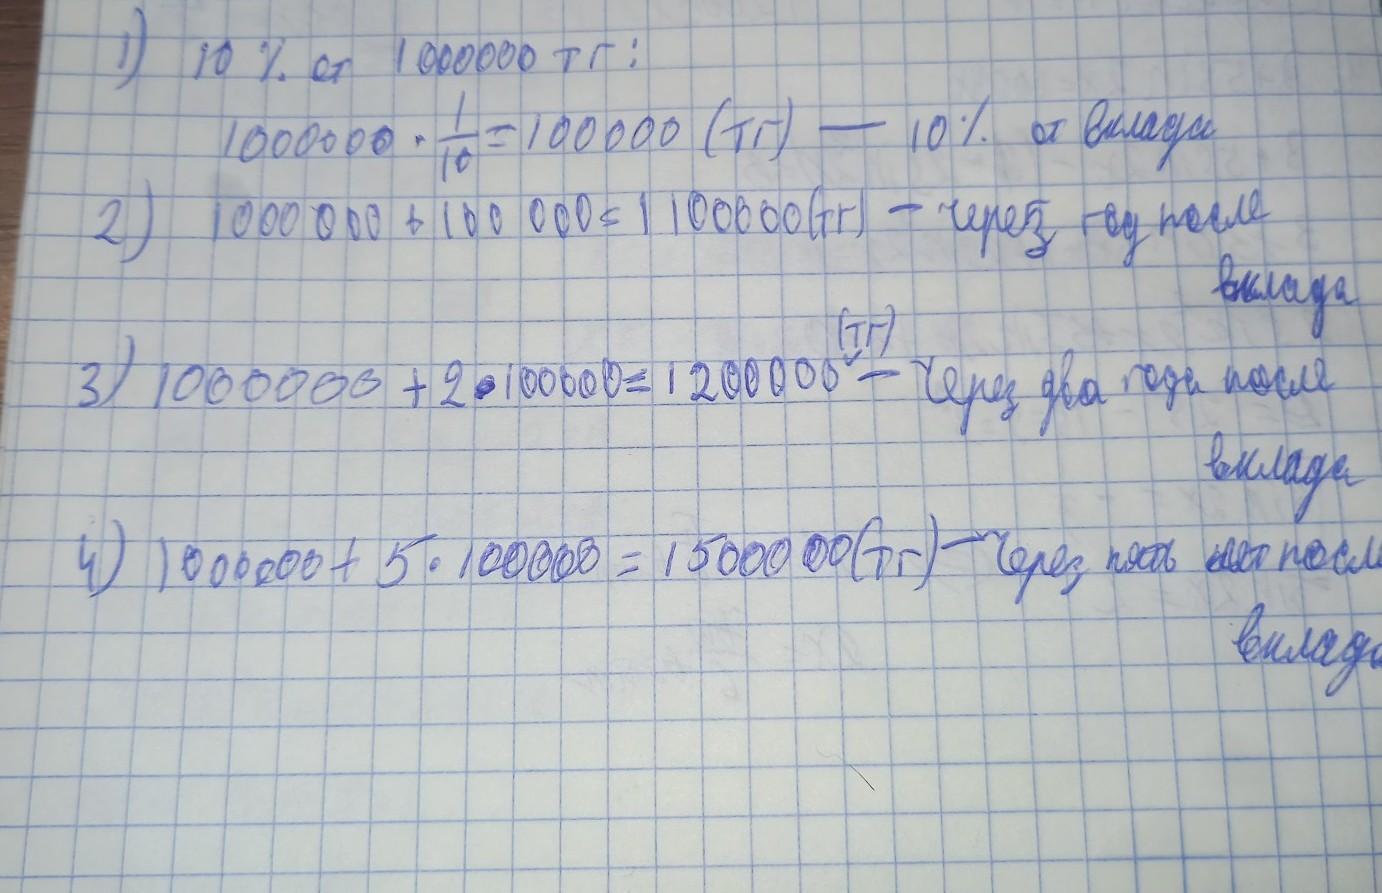 1) 10 % от 1000000 тг:
1000000 · 1/10 = 100000 (тг) — 10% от вклада
2) 1000 000 + 100 000 = 1 100000 (тг) - через год после
вклада
(тг)
3) 1000000 + 2 · 100000 = 1200000 — через два года после
вклада
4) 1000000 + 5 · 100000 = 1500000 (тг) — через пять лет после
вклада